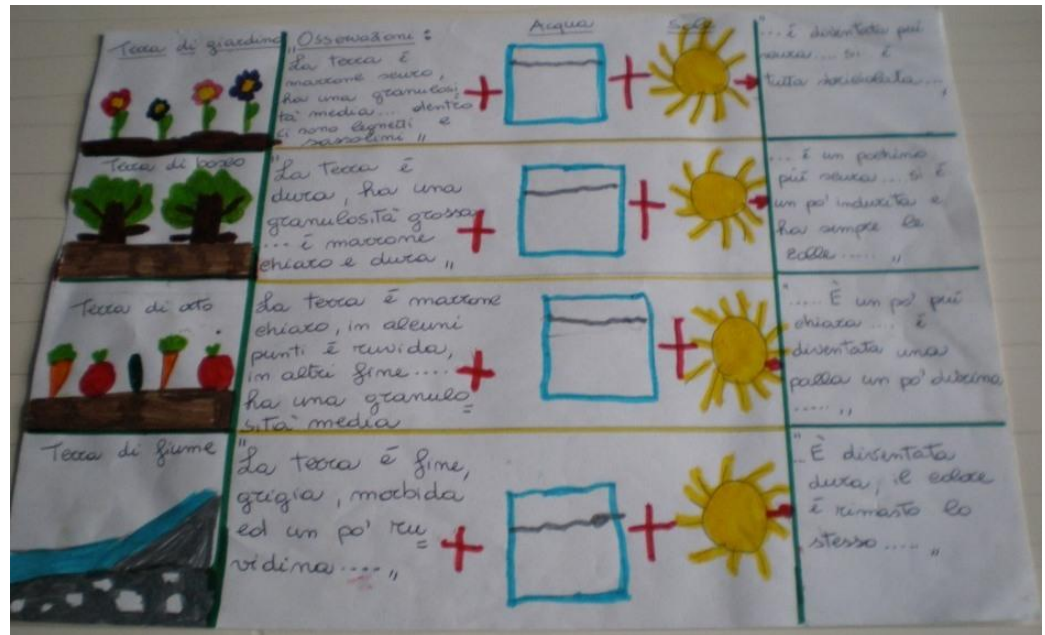 Terra di giardino
Osservazioni:
Acqua
Sole
"La terra è
marrone scuro,
ha una granulosi
tà media... dentro
ci sono legnetti e
sassolini "
"... è diventata più
scura... si è
tutta sbriciolata...,
Terra di bosco
"La terra è
dura, ha una
granulosità grossa
... è marrone
chiaro e dura "
... è un pochino
più scura... si è
un po' indurita e
ha sempre le
zolle ..... "
Terra di orto
La terra è marrone
chiaro, in alcuni
punti è ruvida,
in altri fine....
ha una granulo
sità media
"..... È un po' più
chiara .... è
diventata una
palla un po' durina
..... "
Terra di fiume
"La terra è fine,
grigia, morbida
ed un po' ru
vidina .... "
"... È diventata
dura, il colore
è rimasto lo
stesso ..... "